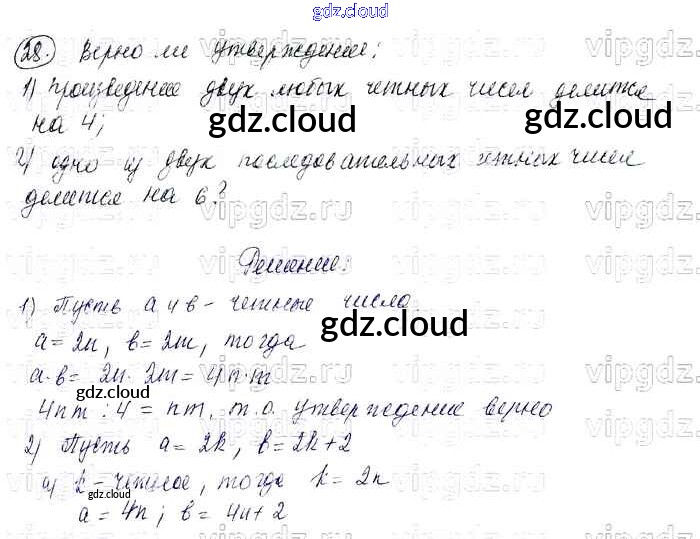 gdz.cloud
28. Верно ли утверждение:
1) произведение двух любых четных чисел делится
на 4;
gdz.cloud
gdz.cloud
2) одно из двух последовательных четных чисел
делится на 6?
Решение:
1) Пусть a и b - четные числа
gdz.cloud
a = 2n, b = 2m, тогда
a·b = 2n · 2m = 4n·m
gdz.cloud
4nm : 4 = nm, т.о. утверждение верно
2) Пусть a = 2k, b = 2k+2
а) k - четное, тогда k = 2n
gdz.cloud
a = 4n; b = 4n+2